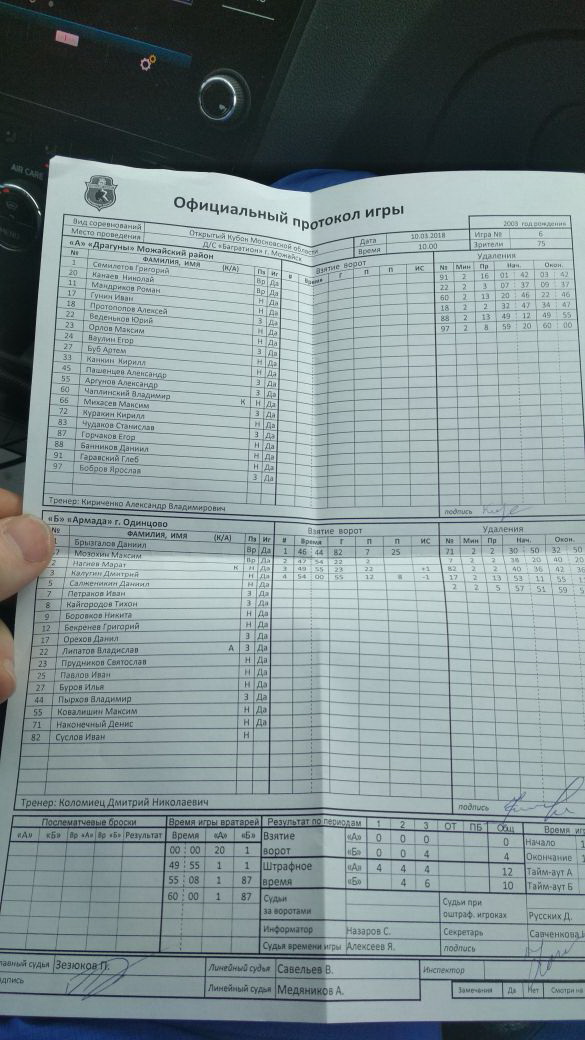 AIR CARE
Официальный протокол игры
2003 год рождения
Вид соревнований Открытый Кубок Московской области Дата 10.03.2018 Игра № 6
Место проведения Д/С «Багратион» г. Можайск Время 10.00 Зрители 75
«А» «Драгуны» Можайский район Взятие ворот Удаления
№ ФАМИЛИЯ, ИМЯ (К/А) Пз Иг # Время Г П П ИС № Мин Пр Нач. Окон.
1 Семилетов Григорий Вр Да 91 2 16 01 42 03 42
20 Канаев Николай Вр Да 22 2 3 07 37 09 37
11 Мандриков Роман Н Да 60 2 13 20 46 22 46
17 Гунин Иван Н Да 18 2 2 32 47 34 47
18 Протопопов Алексей Н Да 88 2 13 49 12 49 55
22 Веденьков Юрий З Да 97 2 8 59 20 60 00
23 Орлов Максим Н Да
24 Ваулин Егор Н Да
27 Буб Артем З Да
33 Канкин Кирилл Н Да
45 Пашенцев Александр Н Да
55 Аргунов Александр З Да
60 Чаплинский Владимир З Да
66 Михасев Максим К Н Да
72 Куракин Кирилл З Да
83 Чудаков Станислав Н Да
87 Горчаков Егор З Да
88 Банников Даниил Н Да
91 Гаравский Глеб Н Да
97 Бобров Ярослав З Да
Тренер: Кириченко Александр Владимирович подпись
«Б» «Армада» г. Одинцово Взятие ворот Удаления
№ ФАМИЛИЯ, ИМЯ (К/А) Пз Иг # Время Г П П ИС № Мин Пр Нач. Окон.
1 Брызгалов Даниил Вр Да 1 46 44 82 7 25 71 2 2 30 50 32 50
7 Мозохин Максим Вр Да 2 47 54 22 2 7 2 2 38 20 40 20
2 Нагиев Марат К Н Да 3 49 55 23 22 +1 82 2 2 40 36 42 36
3 Калугин Дмитрий Н Да 4 54 00 55 12 8 -1 17 2 13 53 11 55
5 Салженикин Даниил Н Да 2 2 5 57 51 59
7 Петраков Иван З Да
8 Кайгородов Тихон З Да
9 Боровков Никита Н Да
12 Бекренев Григорий Н Да
17 Орехов Данил З Да
22 Липатов Владислав А З Да
23 Прудников Святослав Н Да
25 Павлов Иван Н Да
27 Буров Илья Н Да
44 Пырхов Владимир З Да
55 Ковалишин Максим Н Да
71 Наконечный Денис Н Да
82 Суслов Иван Н
Тренер: Коломиец Дмитрий Николаевич подпись
Послематчевые броски Время игры вратарей Результат по периодам 1 2 3 ОТ ПБ Общ Время иг
«А» «Б» Вр «А» Вр «Б» Результат Время «А» «Б» Взятие ворот «А» 0 0 0 0 Начало 1
00 00 20 1 «Б» 0 0 4 4 Окончание 1
49 55 1 1 Штрафное время «А» 4 4 4 12 Тайм-аут А
55 08 1 87 «Б» 4 6 10 Тайм-аут Б
60 00 1 87 Судьи за воротами Судьи при оштраф. игроках Русских Д.
Информатор Назаров С. Секретарь Савченкова
Судья времени игры Алексеев Я. подпись
лавный судья Зезюков П. Линейный судья Савельев В. Инспектор
одпись Линейный судья Медяников А. Замечания Да Нет Смотри на